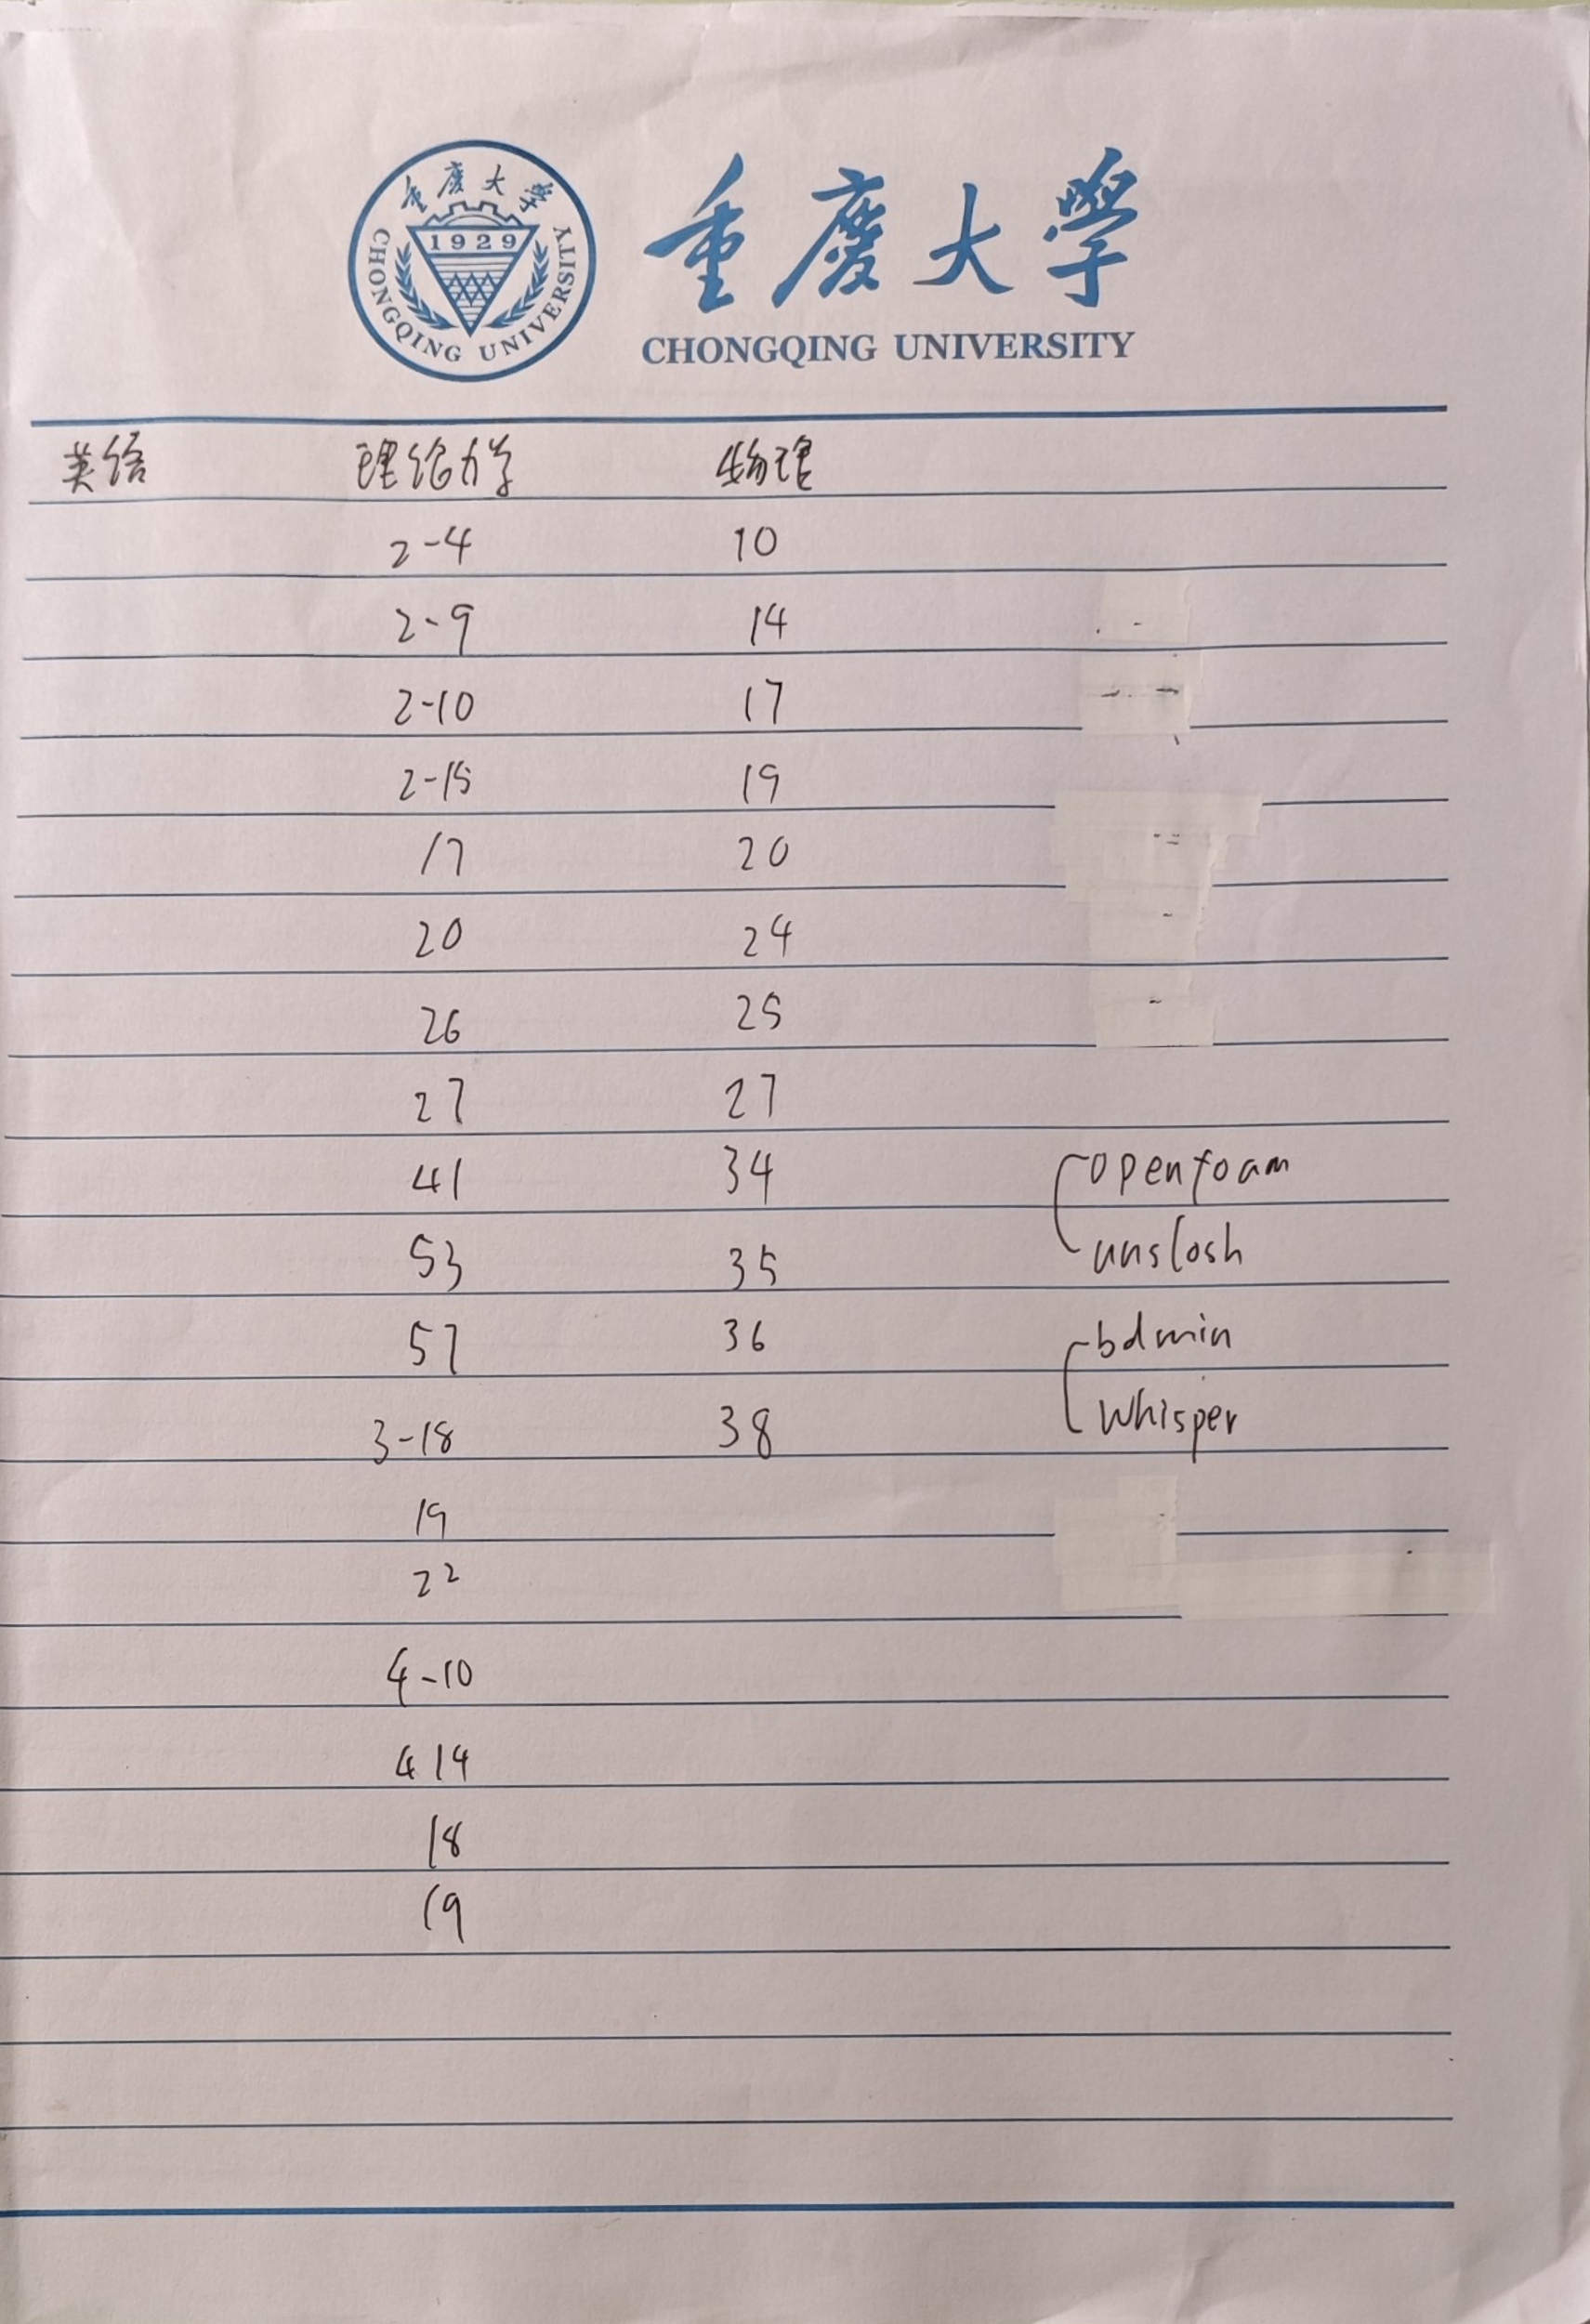 重慶大學
1929
CHONGQING UNIVERSITY
重慶大學
CHONGQING UNIVERSITY
英语 理论力学 物理
2-4 10
2-9 14
2-10 17
2-15 19
17 20
20 24
26 25
27 27
41 34 openfoam
53 35 unslosh
57 36 bdmin
3-18 38 whisper
19
22
4-10
4 14
18
19